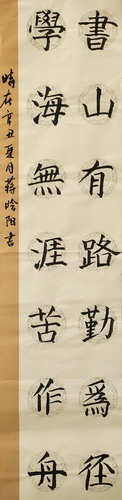 書山有路勤為徑
學海無涯苦作舟
時在辛丑夏月蔣晗陽書